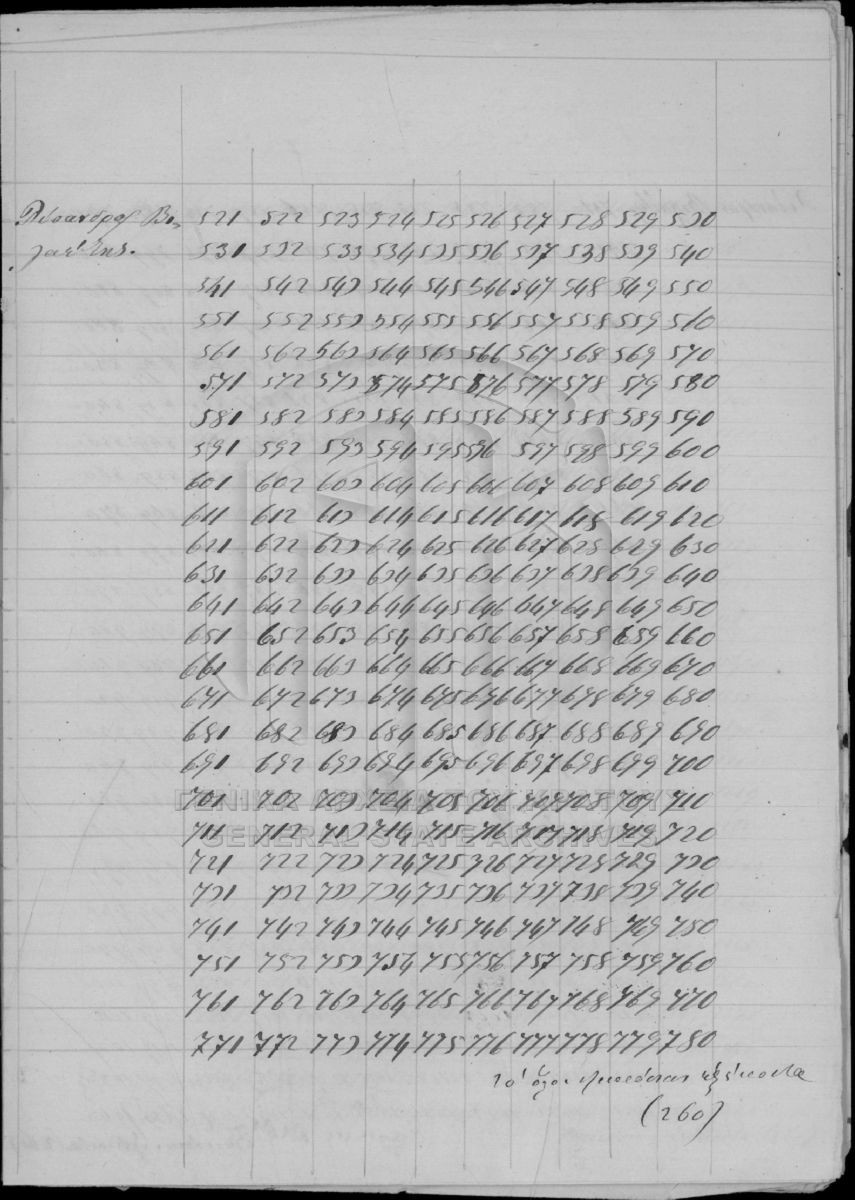 521 522 523 524 525 526 527 528 529 530
531 532 533 534 535 536 537 538 539 540
541 542 543 544 545 546 547 548 549 550
551 552 553 554 555 556 557 558 559 560
561 562 563 564 565 566 567 568 569 570
571 572 573 574 575 576 577 578 579 580
581 582 583 584 585 586 587 588 589 590
591 592 593 594 595 596 597 598 599 600
601 602 603 604 605 606 607 608 609 610
611 612 613 614 615 616 617 618 619 620
621 622 623 624 625 626 627 628 629 630
631 632 633 634 635 636 637 638 639 640
641 642 643 644 645 646 647 648 649 650
651 652 653 654 655 656 657 658 659 660
661 662 663 664 665 666 667 668 669 670
671 672 673 674 675 676 677 678 679 680
681 682 683 684 685 686 687 688 689 690
691 692 693 694 695 696 697 698 699 700
701 702 703 704 705 706 707 708 709 710
711 712 713 714 715 716 717 718 719 720
721 722 723 724 725 726 727 728 729 730
731 732 733 734 735 736 737 738 739 740
741 742 743 744 745 746 747 748 749 750
751 752 753 754 755 756 757 758 759 760
761 762 763 764 765 766 767 768 769 770
771 772 773 774 775 776 777 778 779 780
τὸ ὅλον διακόσια ἑξήκοντα
(260)
GENERAL STATE ARCHIVES